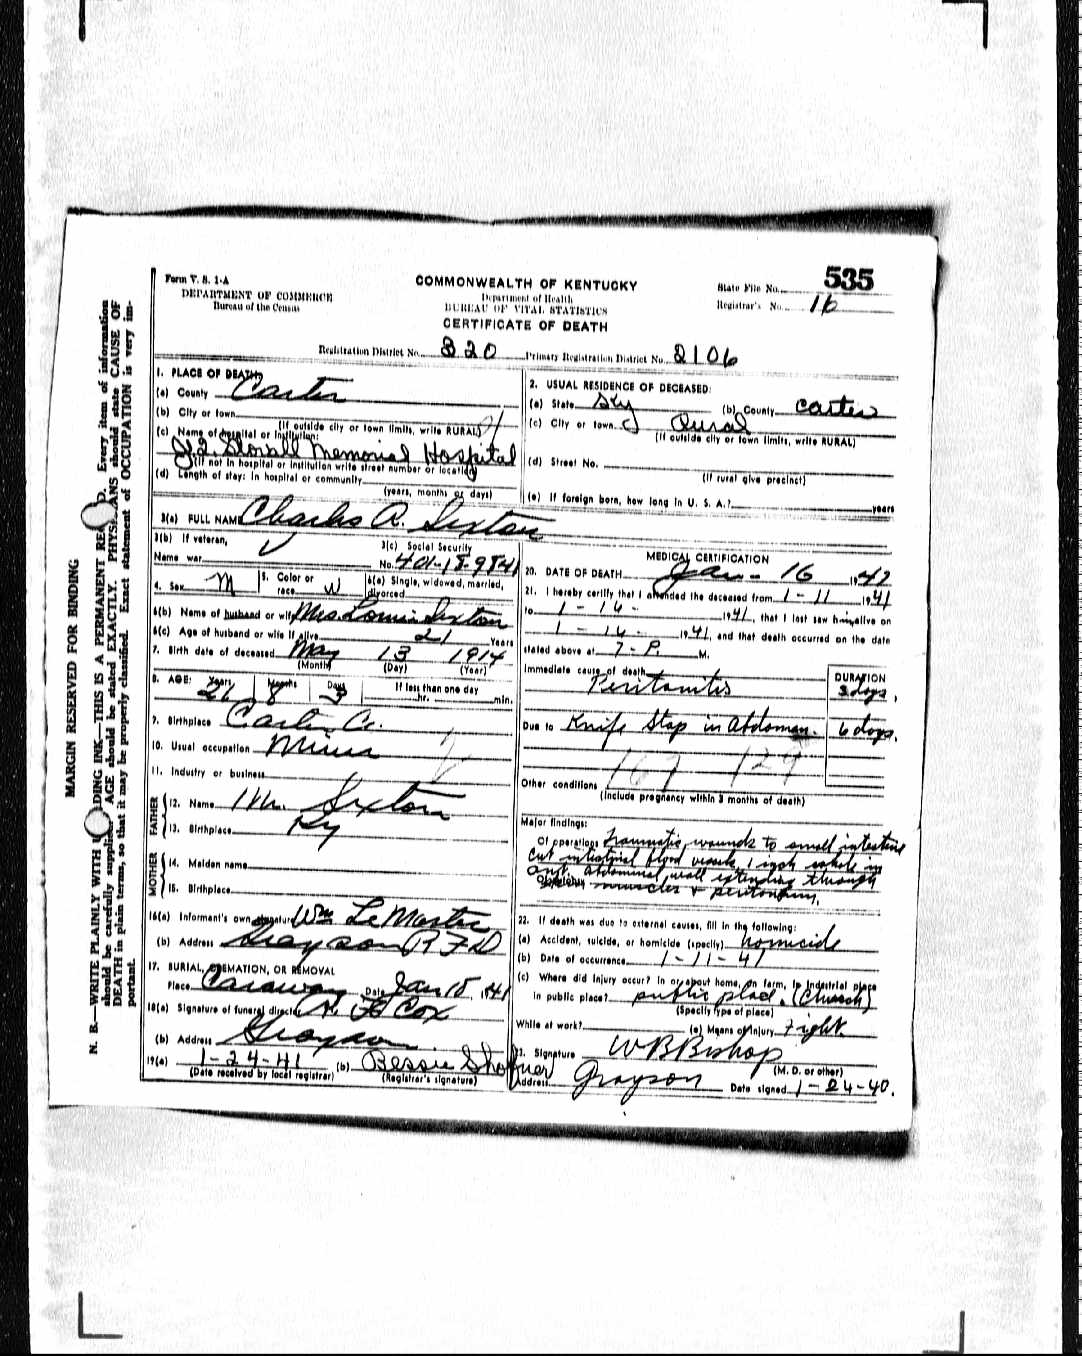 535
Form V. S. 1-A
COMMONWEALTH OF KENTUCKY
State File No.
DEPARTMENT OF COMMERCE
Department of Health
Registrar's No. 16
Bureau of the Census
BUREAU OF VITAL STATISTICS
CERTIFICATE OF DEATH
Registration District No. 320 Primary Registration District No. 2106
MARGIN RESERVED FOR BINDING
N. B.—WRITE PLAINLY WITH DING INK—THIS IS A PERMANENT RE D. Every item of information
should be carefully supplie AGE should be stated EXACTLY. PHYSI ANS should state CAUSE OF
DEATH in plain terms, so that it may be properly classified. Exact statement of OCCUPATION is very im-
portant.
1. PLACE OF DEATH
(a) County Carter
(b) City or town
(If outside city or town limits, write RURAL)
(c) Name of hospital or institution:
J.Q. Stovall Memorial Hospital
(If not in hospital or institution write street number or location)
(d) Length of stay: In hospital or community
(years, months or days)
2. USUAL RESIDENCE OF DECEASED:
(a) State Ky (b) County Carter
(c) City or town Rural
(If outside city or town limits, write RURAL)
(d) Street No.
(If rural give precinct)
(e) If foreign born, how long in U. S. A.? years
3(a) FULL NAME Charles A. Sexton
3(b) If veteran,
Name war
3(c) Social Security
No. 401-18-9841
4. Sex M 5. Color or race W 6(a) Single, widowed, married, divorced
6(b) Name of husband or wife Mrs. Sexton
6(c) Age of husband or wife if alive 21 Years
7. Birth date of deceased May 13 1914
(Month) (Day) (Year)
8. AGE: Years 26 Months 8 Days 3 If less than one day
hr. min.
9. Birthplace Carter Co.
10. Usual occupation Miner
11. Industry or business
FATHER
12. Name Wm. Sexton
13. Birthplace Ky
MOTHER
14. Maiden name
15. Birthplace
16(a) Informant's own signature Wm LeMaster
(b) Address Grayson R F D
17. BURIAL, CREMATION, OR REMOVAL
Place Caraway Date Jan 18, 1941
18(a) Signature of funeral director Cox
(b) Address Grayson
19(a) 1-24-41 (b) Bessie Shoffner
(Date received by local registrar) (Registrar's signature)
MEDICAL CERTIFICATION
20. DATE OF DEATH Jan - 16 1941
21. I hereby certify that I attended the deceased from 1-11 1941
to 1-14- 1941, that I last saw him alive on
1-14- 1941, and that death occurred on the date
stated above at 7-P. M.
Immediate cause of death DURATION
Peritonitis 3 days,
Due to Knife Stap in Abdoman. 6 days.
167 129
Other conditions
(Include pregnancy within 3 months of death)
Major findings:
Of operations Traumatic wounds to small intestine
Cut intestinal blood vessels, 1 inch in
ant. abdominal wall extending through
muscles & peritoneum.
22. If death was due to external causes, fill in the following:
(a) Accident, suicide, or homicide (specify) homicide
(b) Date of occurrence 1-11-41
(c) Where did injury occur? In or about home, on farm, in industrial place
in public place? public place. (Church)
(Specify type of place)
While at work? (e) Means of injury Fight.
23. Signature W B Bishop
(M. D. or other)
Address Grayson Date signed 1-24-40.